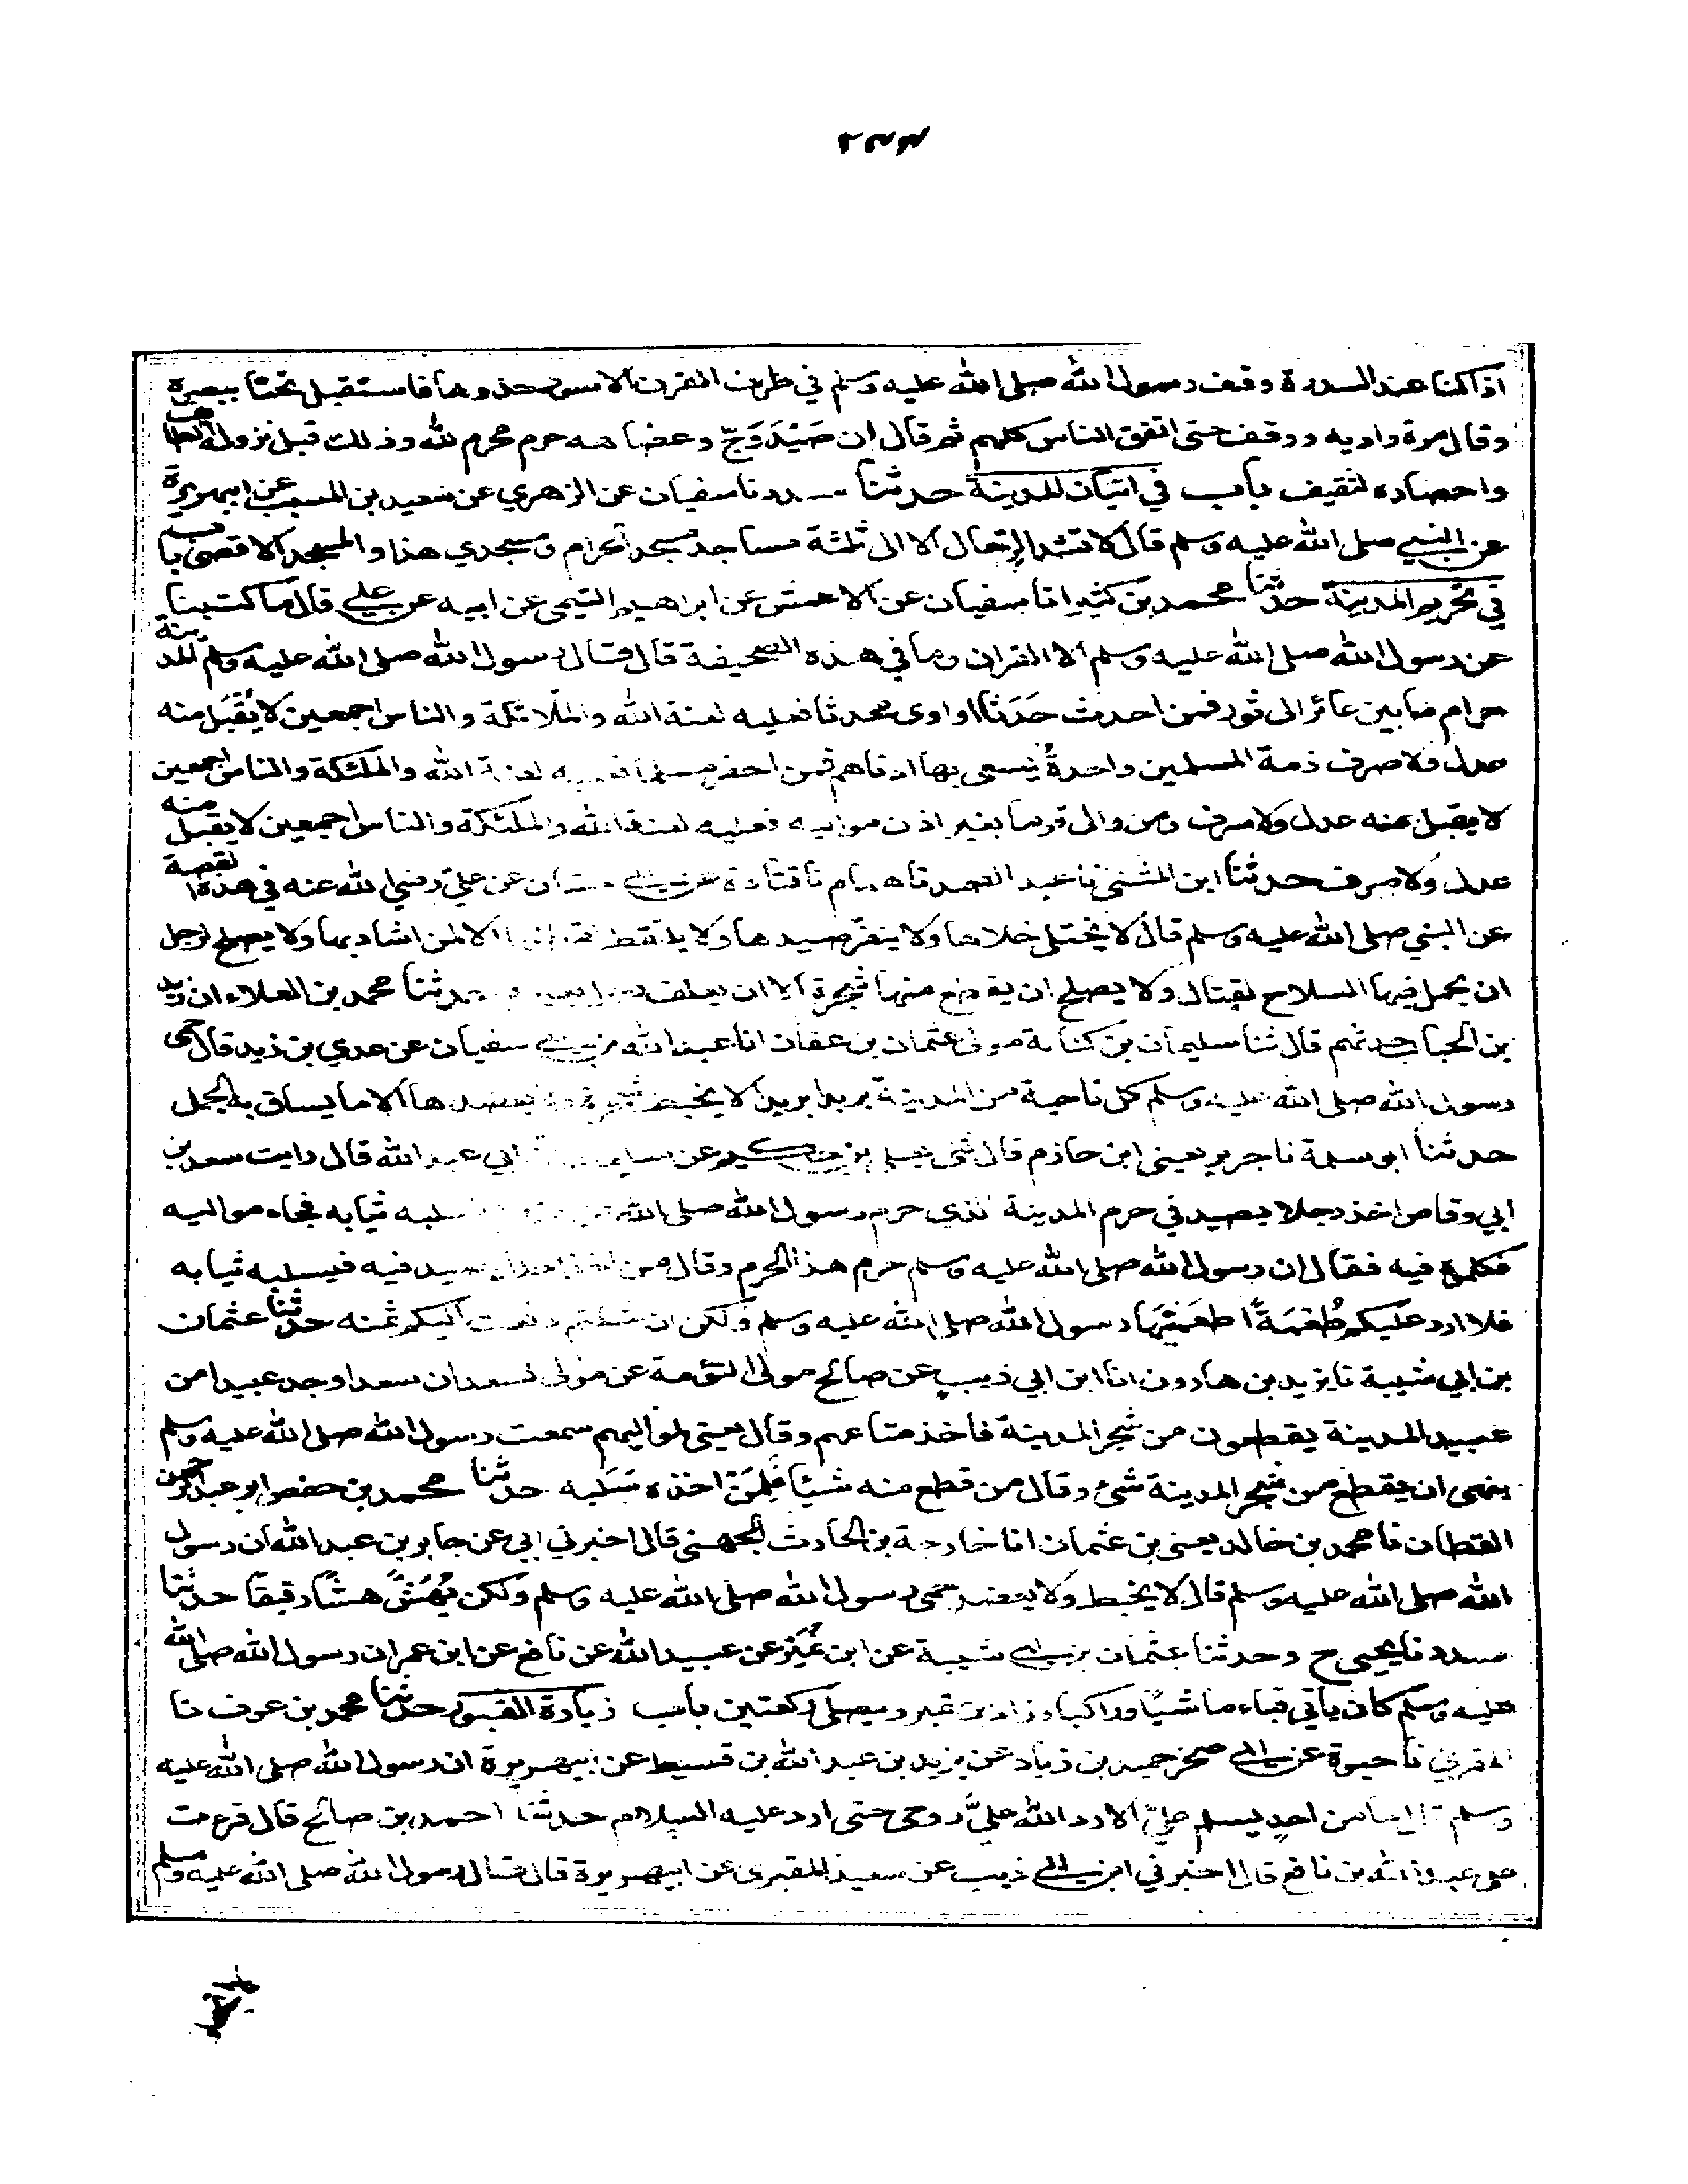 اذا كنا عند السدرة وقف رسول الله صلى الله عليه وسلم في طرف القرن الاسود حذوها فاستقبل نخبا ببصره
وقال مرة واديه ووقف حتى اتفق الناس كلهم ثم قال ان صَيْدَ وَجّ وعضاهه حرم محرم لله وذلك قبل نزوله الطائف
واحصاره لثقيف باب في اتيان المدينة حدثنا مسدد نا سفيان عن الزهري عن سعيد بن المسيب عن ابيهريرة
عن النبي صلى الله عليه وسلم قال لا تشد الرحال الا الى ثلثة مساجد مسجد الحرام ومسجدي هذا والمسجد الاقصى باب
في تحريم المدينة حدثنا محمد بن كثير انا سفيان عن الاعمش عن ابراهيم التيمي عن ابيه عن علي قال ما كتبنا
عن رسول الله صلى الله عليه وسلم الا القران وما في هذه الصحيفة قال قال رسول الله صلى الله عليه وسلم المدينة
حرام ما بين عائر الى ثور فمن احدث حَدَثا او اوى محدثا فعليه لعنة الله والملائكة والناس اجمعين لا يُقْبَل منه
عدل ولا صرف ذمة المسلمين واحدةُ يسعى بها ادناهم فمن اخفر مسلما فعليه لعنة الله والملئكة والناس اجمعين
لا يقبل منه عدل ولا صرف ومن والى قوما بغير اذن مواليه فعليه لعنة الله والملئكة والناس اجمعين لا يقبل منه
عدل ولا صرف حدثنا ابن المثنى نا عبد الصمد نا همام نا قتادة عن ابي حسان عن علي رضي الله عنه في هذه القصة
عن النبي صلى الله عليه وسلم قال لا يختلى خلاها ولا ينفر صيدها ولا يلتقط لقطتها الا لمن اشاد بها ولا يصلح لرجل
ان يحمل فيها السلاح لقتال ولا يصلح ان يقطع منها شجرة الا ان يعلف رجل بعيره حدثنا محمد بن العلاء ان زيد
بن الحباب حدثهم قال ثنا سليمان بن كنانة مولى عثمان بن عفان انا عبد الله بن ابي سفيان عن عدي بن زيد قال حمى
رسول الله صلى الله عليه وسلم كل ناحية من المدينة بريدا بريدا لا يخبط شجره ولا يعضدها الا ما يساق به الجمل
حدثنا ابو سلمة نا جرير يعنى ابن حازم قال ثنى يعلى بن حكيم عن سليمان بن ابي عبد الله قال رايت سعد بن
ابي وقاص اخذ رجلا يصيد في حرم المدينة الذي حرم رسول الله صلى الله عليه وسلم فسلبه ثيابه فجاء مواليه
فكلموه فيه فقال ان رسول الله صلى الله عليه وسلم حرم هذا الحرم وقال من اخذ احدا يصيد فيه فيسلبه ثيابه
فلا ارد عليكم طُعْمَةً اطعمَنِيْهَا رسول الله صلى الله عليه وسلم ولكن ان شئتم دفعت اليكم ثمنه حدثنا عثمان
بن ابي شيبة نا يزيد بن هارون انا ابن ابي ذيب عن صالح مولى التؤمة عن مولى لسعد ان سعدا وجد عبيدا من
عبيد المدينة يقطعون من شجر المدينة فاخذ متاعهم وقال يعنى لمواليهم سمعت رسول الله صلى الله عليه وسلم
ينهى ان يقطع من شجر المدينة شئ وقال من قطع منه شيئا فَلِمَنْ اخذه سَلَبه حدثنا محمد بن حفص ابو عبد الرحمن
القطان نا محمد بن خالد يعنى بن عثمان انا خارجة بن الحارث الجهني قال اخبرني ابي عن جابر بن عبد الله ان رسول
الله صلى الله عليه وسلم قال لا يخبط ولا يعضد حمى رسول الله صلى الله عليه وسلم ولكن يُهَشُّ هشًّا رقيقًا حدثنا
مسدد نا يحيى ح وحدثنا عثمان بن ابي شيبة عن ابن نُمَيْر عن عبيد الله عن نافع عن ابن عمر ان رسول الله صلى الله
عليه وسلم كان ياتي قباء ماشيًا وراكبا زاد بن نمير ويصلى ركعتين باب زيارة القبور حدثنا محمد بن عوف نا
المقرئ نا حيوة عن ابي صخر حميد بن زياد عن يزيد بن عبد الله بن قسيط عن ابيهريرة ان رسول الله صلى الله عليه
وسلم قال ما من احد يسلم عليّ الا رد الله عليَّ روحى حتى ارد عليه السلام حدثنا احمد بن صالح قال قرءت
على عبد الله بن نافع قال اخبرني ابن ابي ذيب عن سعيد المقبرى عن ابيهريرة قال قال رسول الله صلى الله عليه وسلم